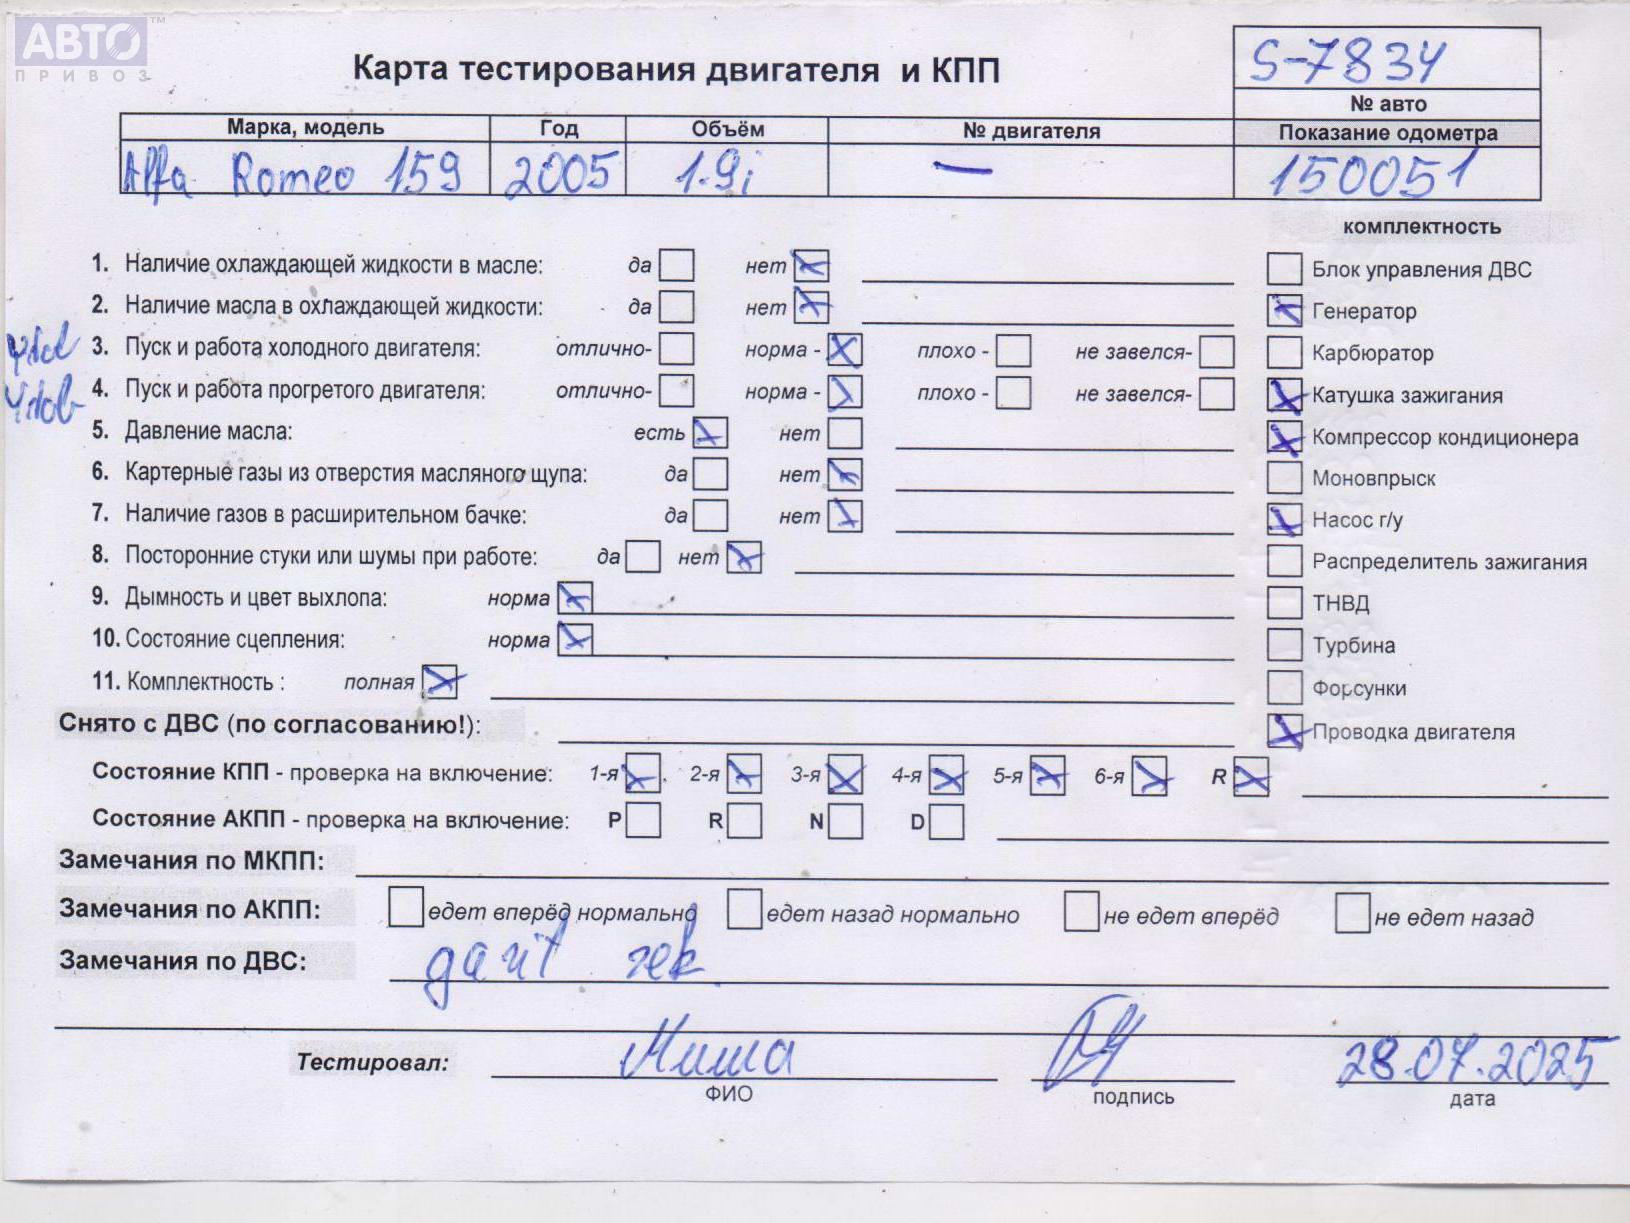 АВТО™
ПРИВОЗ
Карта тестирования двигателя и КПП
S-7834
№ авто
Марка, модель Год Объём № двигателя Показание одометра
Alfa Romeo 159 2005 1.9i — 150051
комплектность
1. Наличие охлаждающей жидкости в масле: да нет
Блок управления ДВС
2. Наличие масла в охлаждающей жидкости: да нет
Генератор
3. Пуск и работа холодного двигателя: отлично- норма - плохо - не завелся-
Карбюратор
4. Пуск и работа прогретого двигателя: отлично- норма - плохо - не завелся-
Катушка зажигания
5. Давление масла: есть нет
Компрессор кондиционера
6. Картерные газы из отверстия масляного щупа: да нет
Моновпрыск
7. Наличие газов в расширительном бачке: да нет
Насос г/у
8. Посторонние стуки или шумы при работе: да нет
Распределитель зажигания
9. Дымность и цвет выхлопа: норма
ТНВД
10. Состояние сцепления: норма
Турбина
11. Комплектность : полная
Форсунки
Снято с ДВС (по согласованию!):
Проводка двигателя
Состояние КПП - проверка на включение: 1-я 2-я 3-я 4-я 5-я 6-я R
Состояние АКПП - проверка на включение: P R N D
Замечания по МКПП:
Замечания по АКПП: едет вперёд нормально едет назад нормально не едет вперёд не едет назад
Замечания по ДВС:
Тестировал: Миша 28.07.2025
ФИО подпись дата